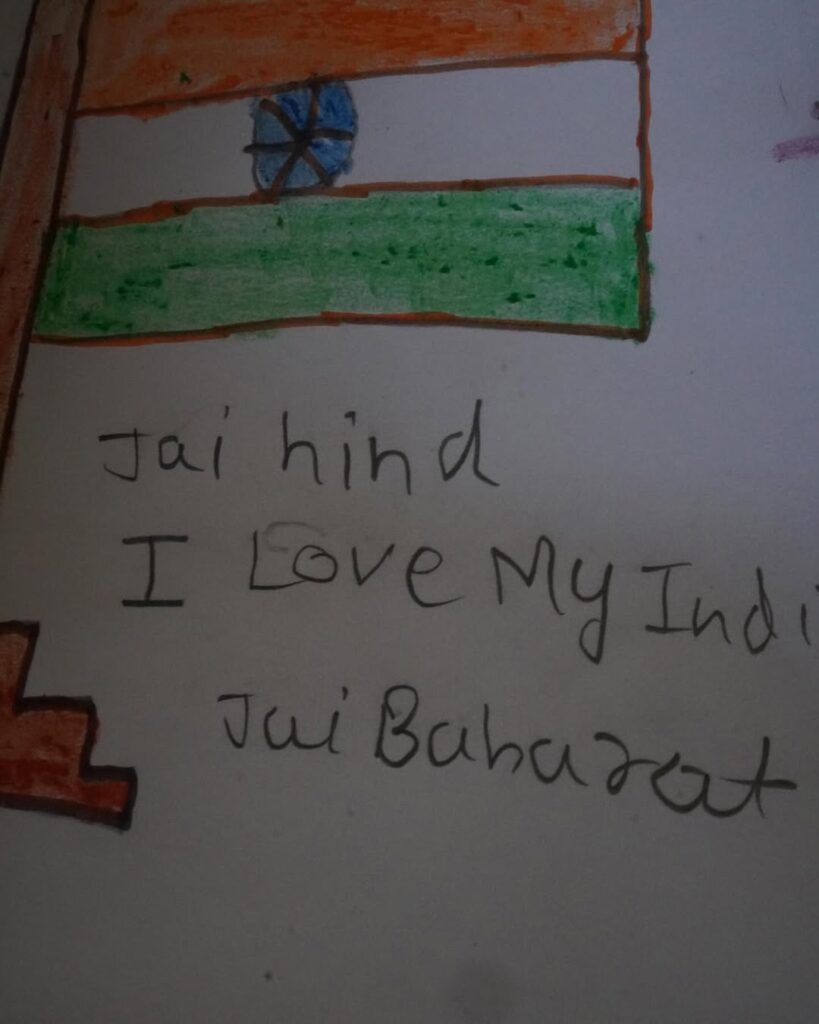 Jai hind
I Love My Indi
Jai Baharat